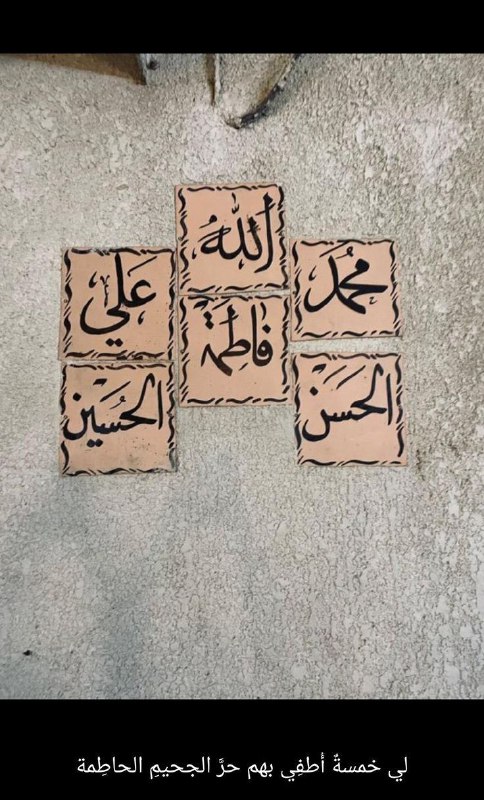 اللهُ
محمد
عَلي
فاطِمَة
الحَسَن
الحُسَين
لي خمسةٌ أُطفِي بهم حرَّ الجحيمِ الحاطِمة